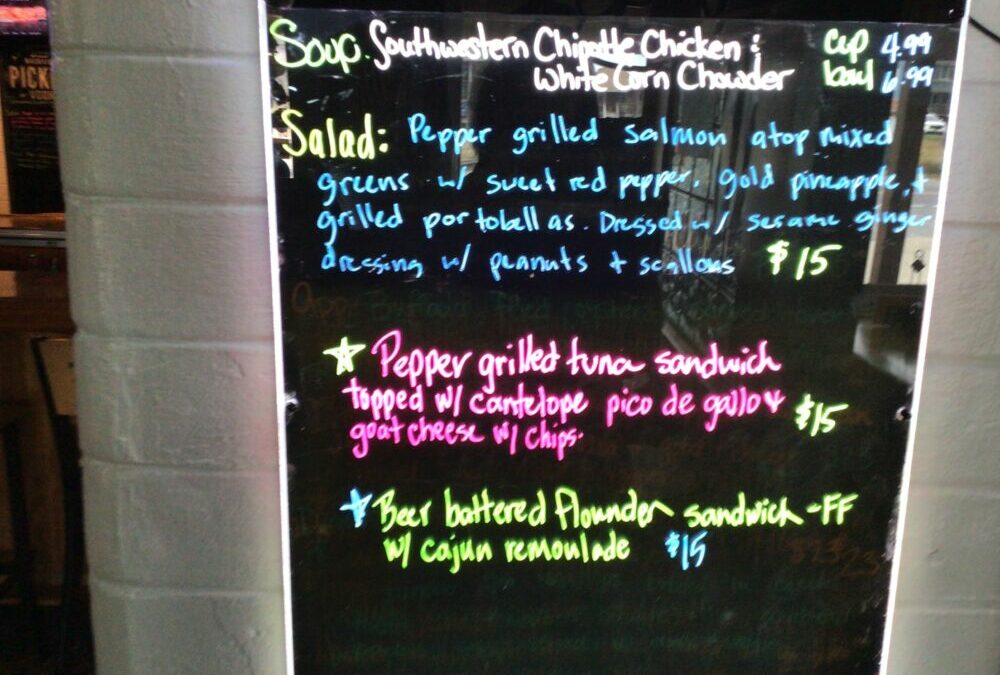 PICK
Soup. Southwestern Chipotle Chicken : cup 4.99
White Corn Chowder bowl 6.99
Salad: Pepper grilled salmon atop mixed
greens w/ sweet red pepper, gold pineapple, +
grilled portobellas. Dressed w/ sesame ginger
dressing w/ peanuts + scallions $15
☆ Pepper grilled tuna sandwich
topped w/ cantelope pico de gallo &
goat cheese w/ chips. $15
☆ Beer battered flounder sandwich - FF
w/ cajun remoulade $15